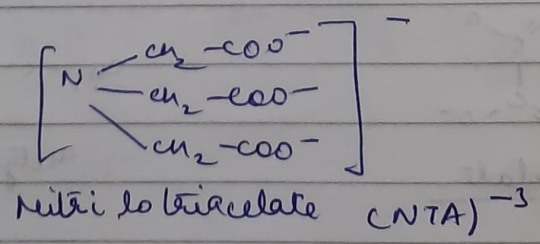 CH2-COO- -
N CH2-COO-
CH2-COO-
Nitrilotriacetate (NTA)-3